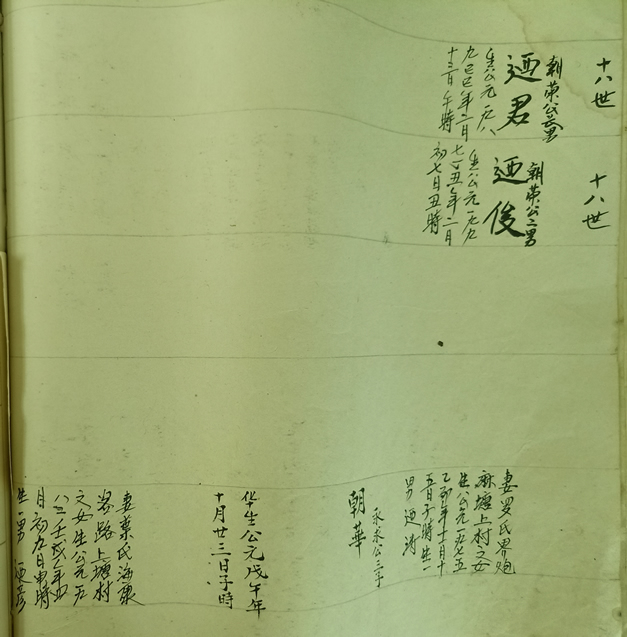 十八世
朝荣公長男
迺君
生公元一九八
九己巳年二月
十三日午時
十八世
朝荣公二男
迺俊
生公元一九九
七丁丑年二月
初七日丑時
妻罗氏界炮
麻塘上村之女
生公元一九七五
乙卯年十一月十
五日子時生一
男迺涛
永永公三子
朝華
华生公元戊午年
十月廿三日子時
妻葉氏海康
路上塘村
之女生公元一九
八二壬戌年
月初九日申時
生一男迺彦